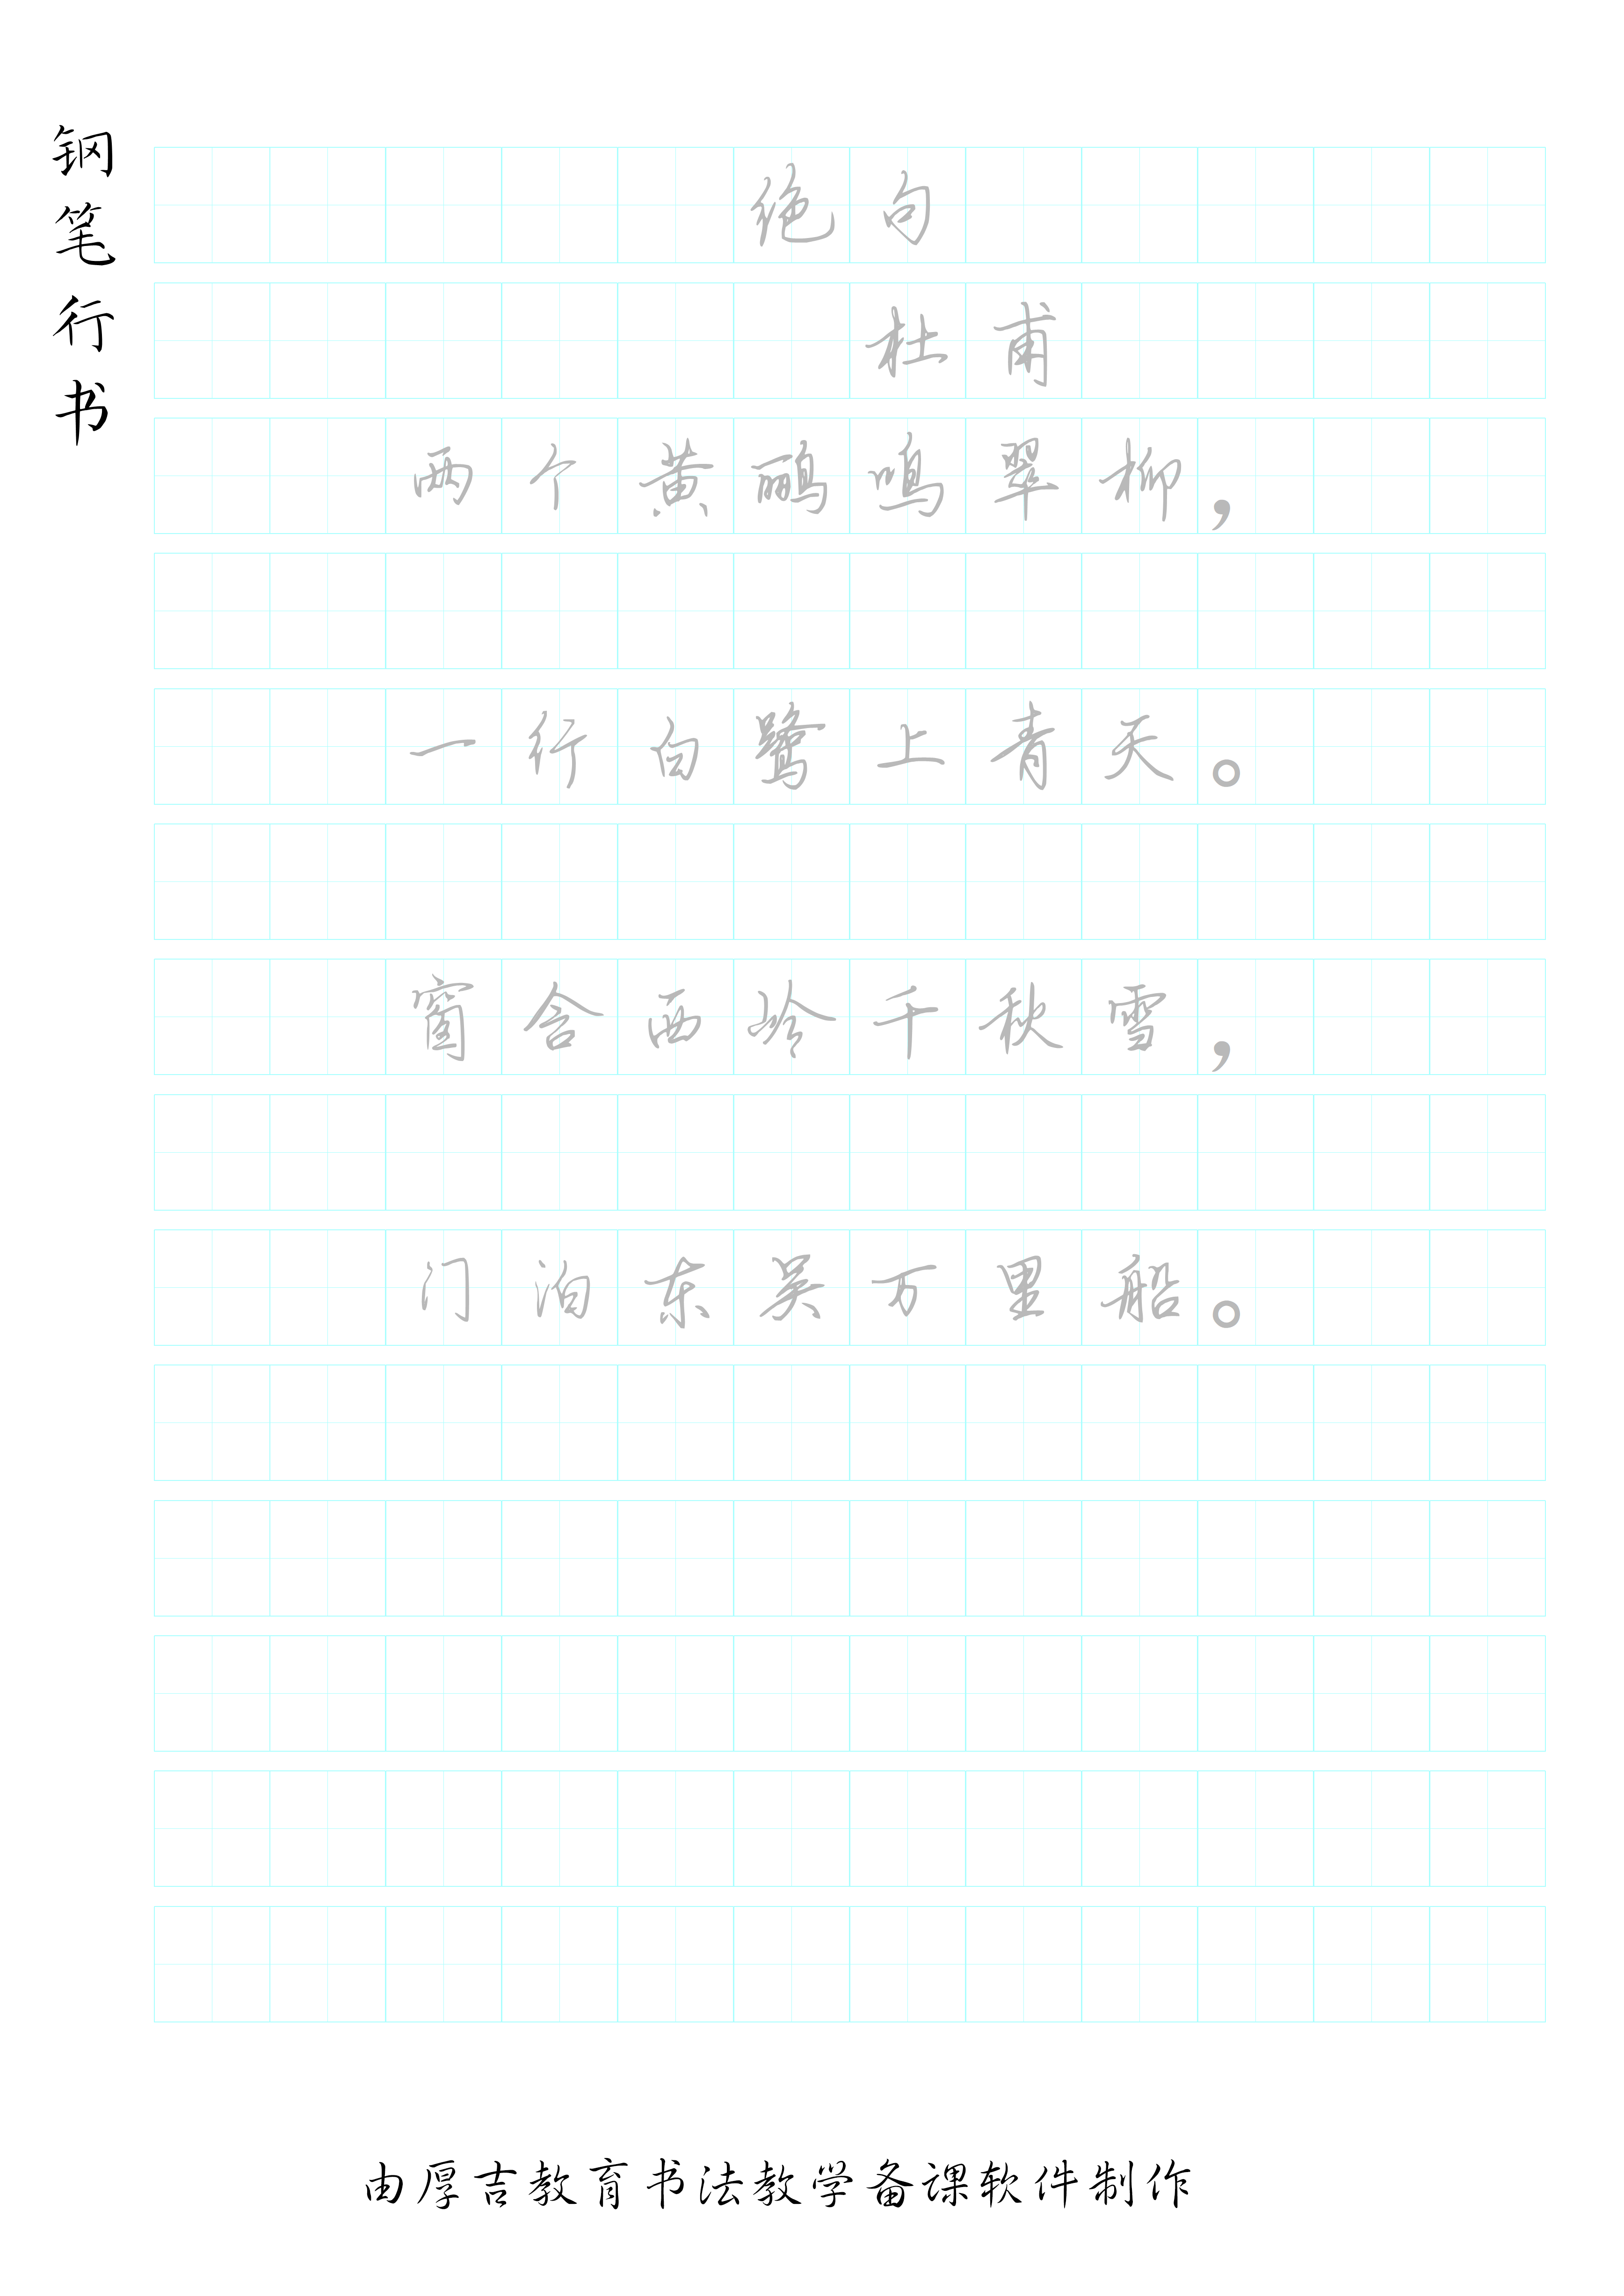 钢笔行书
绝句
杜甫
两个黄鹂鸣翠柳，
一行白鹭上青天。
窗含西岭千秋雪，
门泊东吴万里船。
由厚吉教育书法教学备课软件制作